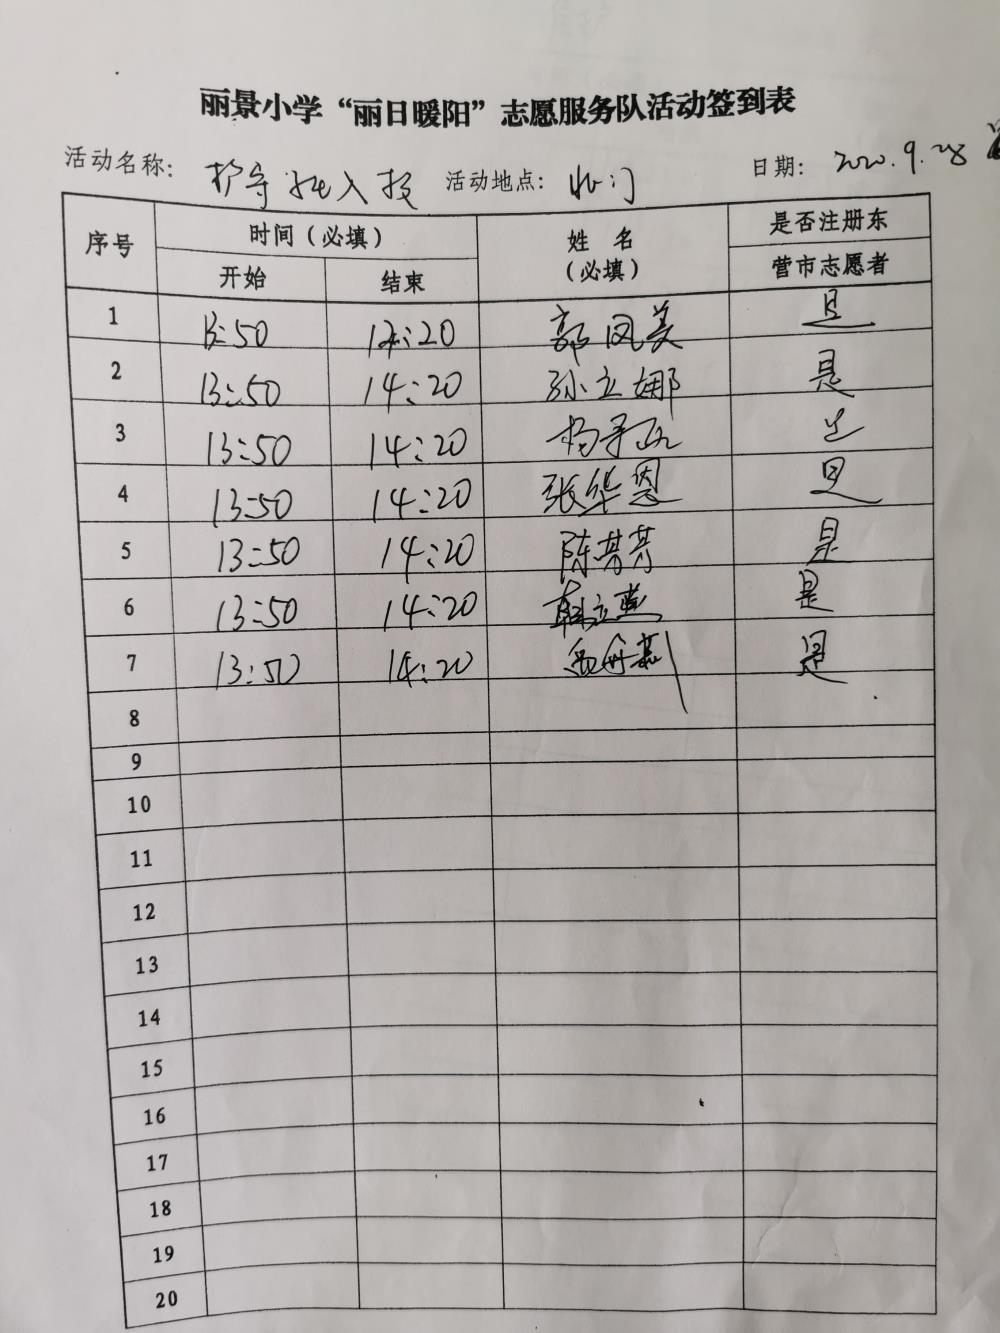 丽景小学“丽日暖阳”志愿服务队活动签到表
活动名称： 护导 入校 活动地点： 北门 日期： 2020.9.28
序号 时间（必填） 姓 名 （必填） 是否注册东
开始 结束 营市志愿者
1 13:50 14:20 郭凤美 是
2 13:50 14:20 孙立娜 是
3 13:50 14:20 杨 是
4 13:50 14:20 张华恩 是
5 13:50 14:20 陈芳芳 是
6 13:50 14:20 韩立燕 是
7 13:50 14:20 是
8
9
10
11
12
13
14
15
16
17
18
19
20